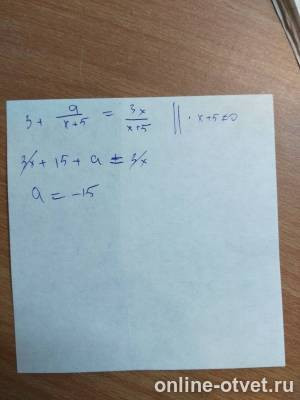 3 + a/(x+5) = 3x/(x+5) || · x+5≠0
3x + 15 + a = 3x
a = -15
online-otvet.ru